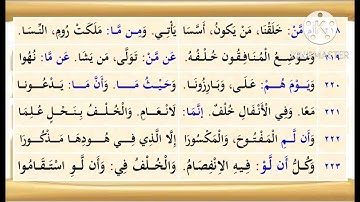 ٢١٨ مَّنْ: خَلَقْنَا، مَنْ يَكُونُ، أَسَّسَا يَأْتِـي. وَمِن مَّا: مَلَكَتْ رُومِ، النِّسَا.
٢١٩ وَمَوْضِعُ الْمُنَافِقُونَ خُلْفُـهُ. عَن مَّنْ: تَوَلَّى، مَن يَشَا. عَن مَّا: نُهُوا
٢٢٠ وَيَوْمَ هُمْ: عَلَى، وَبَارِزُونَا. وَحَيْثُ مَا. وَأَنَّ مَا: يَدْعُونَا
٢٢١ مَعًا. وَفِي الْأَنْفَالِ خُلْفٌ. إِنَّمَا: لَانْعَامَ. وَالْخُلْفُ بِنَحْلٍ عُلِمَا
٢٢٢ وَأَن لَّمِ الْمَفْتُوحَ، وَالْمَكْسُورَا إِلَّا الَّذِي فِي هُودِهَا مَذْكُورَا
٢٢٣ وَكُلُّ أَن لَّوْ: فِيهِ الِانْفِصَامُ. وَالْخُلْفُ فِي: وَأَن لَّوِ اسْتَقَامُوا